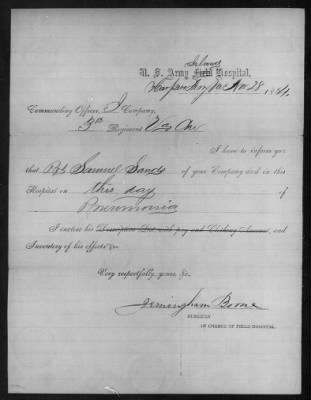 Island
U. S. Army Field Hospital,
Mar 28 1864.
Commanding Officer, I Company,
5th Regiment
I have to inform you
that Pvt Samuel Sands of your Company died in this
Hospital on this day of
Pneumonia
I enclose his Descriptive List with pay and Clothing Account, and
Inventory of his effects
Very respectfully, yours, &c.
Jermingham Boone
SURGEON
IN CHARGE OF FIELD HOSPITAL.